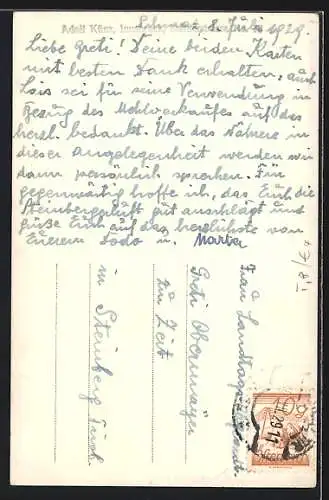 Adolf Künz, Inns
Schwaz 8. Juli 1929.
Liebe Greti! Deine beiden Karten
mit besten Dank erhalten, auch
Lois sei für seine Verwendung in
Bezug des Mehlverkaufes auf das
herzl. bedankt. Über das Nähere in
dieser Angelegenheit werden wir
dann persönlich sprechen. Für
gegenwärtig hoffe ich, das Euch die
Steinbergerluft gut anschlägt und
grüße Euch auf das herzlichste von
Eueren Dodo u. Marta
Frau Landtags
Greti Obermayer
zur Zeit
in Steinberg